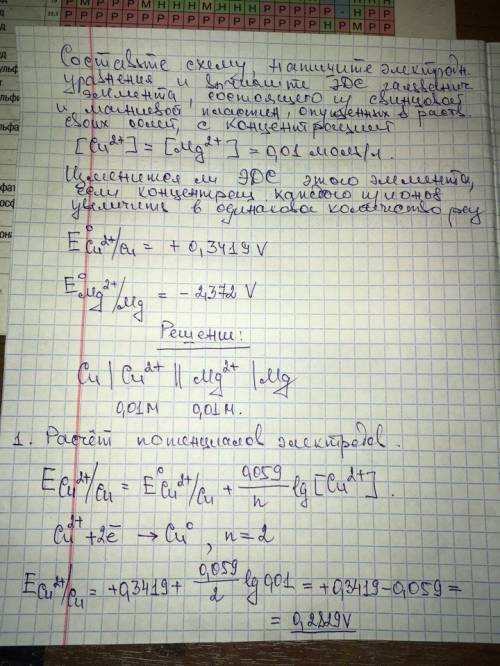 Р Р Р М Н Н Н М Н М Р Р Р Р - Н Р Р
Составьте схему, напишите электродн.
уравнения и вычислите ЭДС гальванич
элемента, состоящего из свинцовой
и магниевой пластин, опущенных в раств.
своих солей, с концентрацией
[Cu²⁺] = [Mg²⁺] = 0,01 моль/л.
Изменится ли ЭДС этого элемента,
если концентрац каждого из ионов
увеличить в одинаковое количество раз
E⁰ Cu²⁺/Cu = + 0,3419 V
E⁰ Mg²⁺/Mg = - 2,372 V
Решение:
Cu | Cu²⁺ || Mg²⁺ | Mg
0,01М 0,01М.
1. Расчёт потенциалов электродов.
E Cu²⁺/Cu = E⁰ Cu²⁺/Cu + 0,059/n lg [Cu²⁺].
Cu²⁺ + 2ē → Cu⁰, n = 2
E Cu²⁺/Cu = +0,3419 + 0,059/2 lg 0,01 = +0,3419 - 0,059 =
= 0,2829V